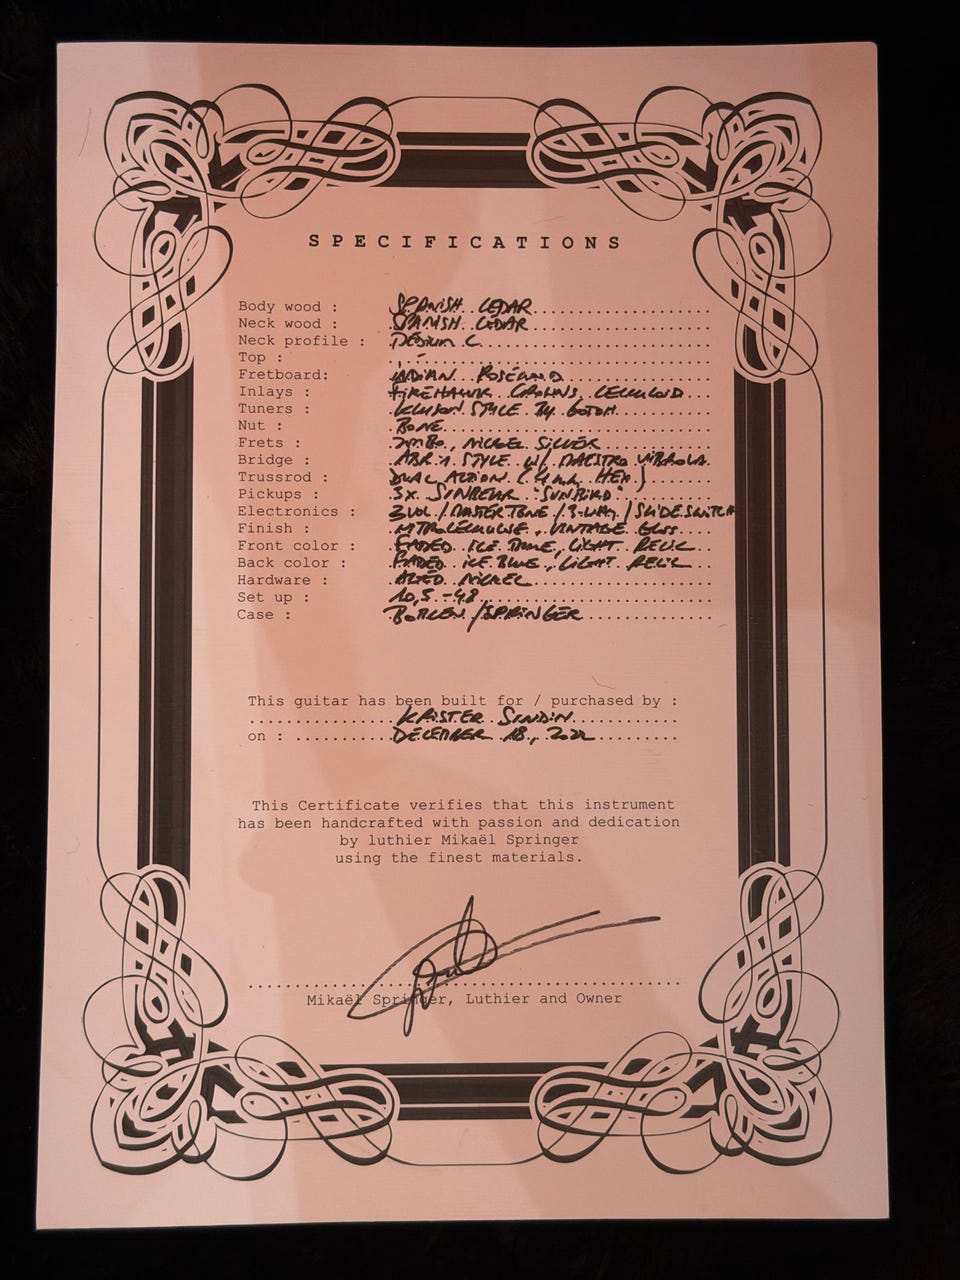 SPECIFICATIONS
Body wood : SPANISH CEDAR
Neck wood : SPANISH CEDAR
Neck profile : MEDIUM C
Top : -
Fretboard: INDIAN ROSEWOOD
Inlays : FIREHAWK CROWNS CELLULOID
Tuners : KLUSON STYLE BY GOTOH
Nut : BONE
Frets : JUMBO, NICKEL SILVER
Bridge : ABR-1 STYLE W/ MAESTRO VIBROLA
Trussrod : DUAL ACTION (4 mm HEX)
Pickups : 3X "SUNBIRD"
Electronics : 3VOL/MASTERTONE/3-WAY/SLIDESWITCH
Finish : NITROCELLULOSE, VINTAGE GLOSS
Front color : FADED ICE BLUE, LIGHT RELIC
Back color : FADED ICE BLUE, LIGHT RELIC
Hardware : AGED NICKEL
Set up : 10,5 - 48
Case : /SPRINGER
This guitar has been built for / purchased by :
KRISTER SUNDIN
on : DECEMBER 18, 2022
This Certificate verifies that this instrument
has been handcrafted with passion and dedication
by luthier Mikaël Springer
using the finest materials.
Mikaël Springer, Luthier and Owner